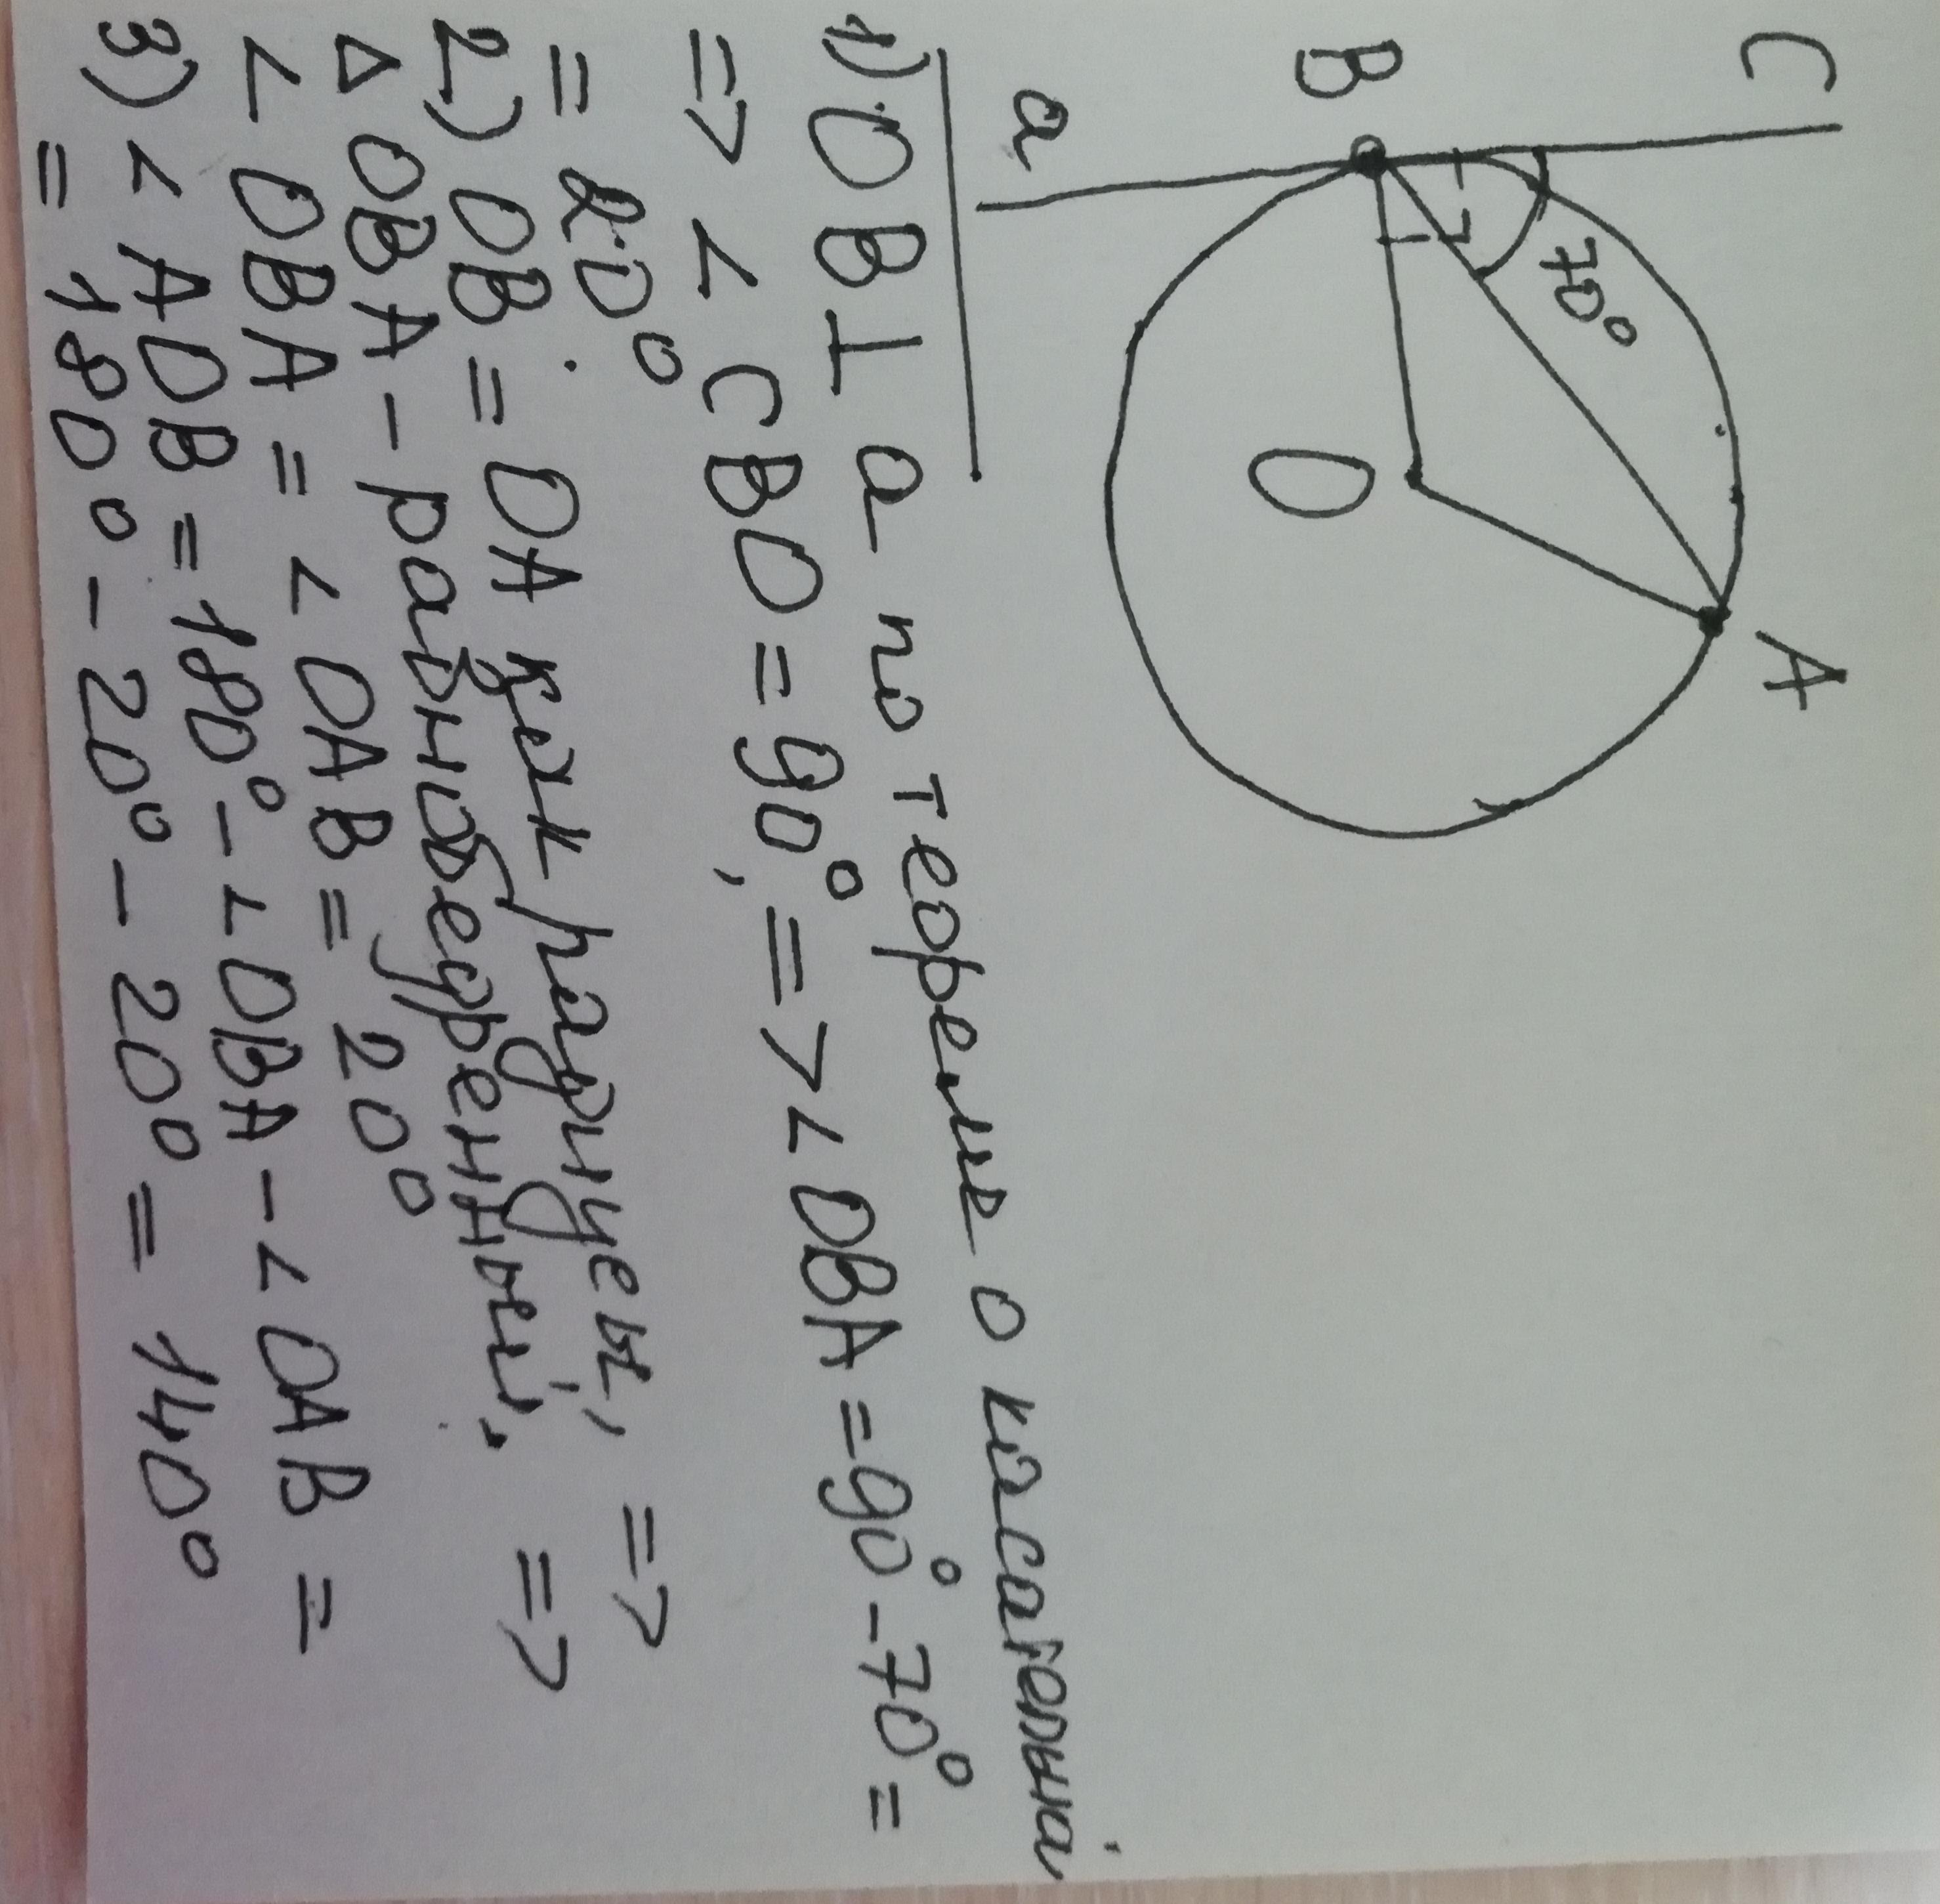 C
B
a
70°
O
A
1) OB ⊥ a по теореме о касательной
=> ∠ CBO = 90°, => ∠ OBA = 90° - 70° =
= 20°
2) OB = OA как радиусы, =>
Δ OBA - равнобедренный, =>
∠ OBA = ∠ OAB = 20°
3) ∠ AOB = 180° - ∠ OBA - ∠ OAB =
= 180° - 20° - 20° = 140°